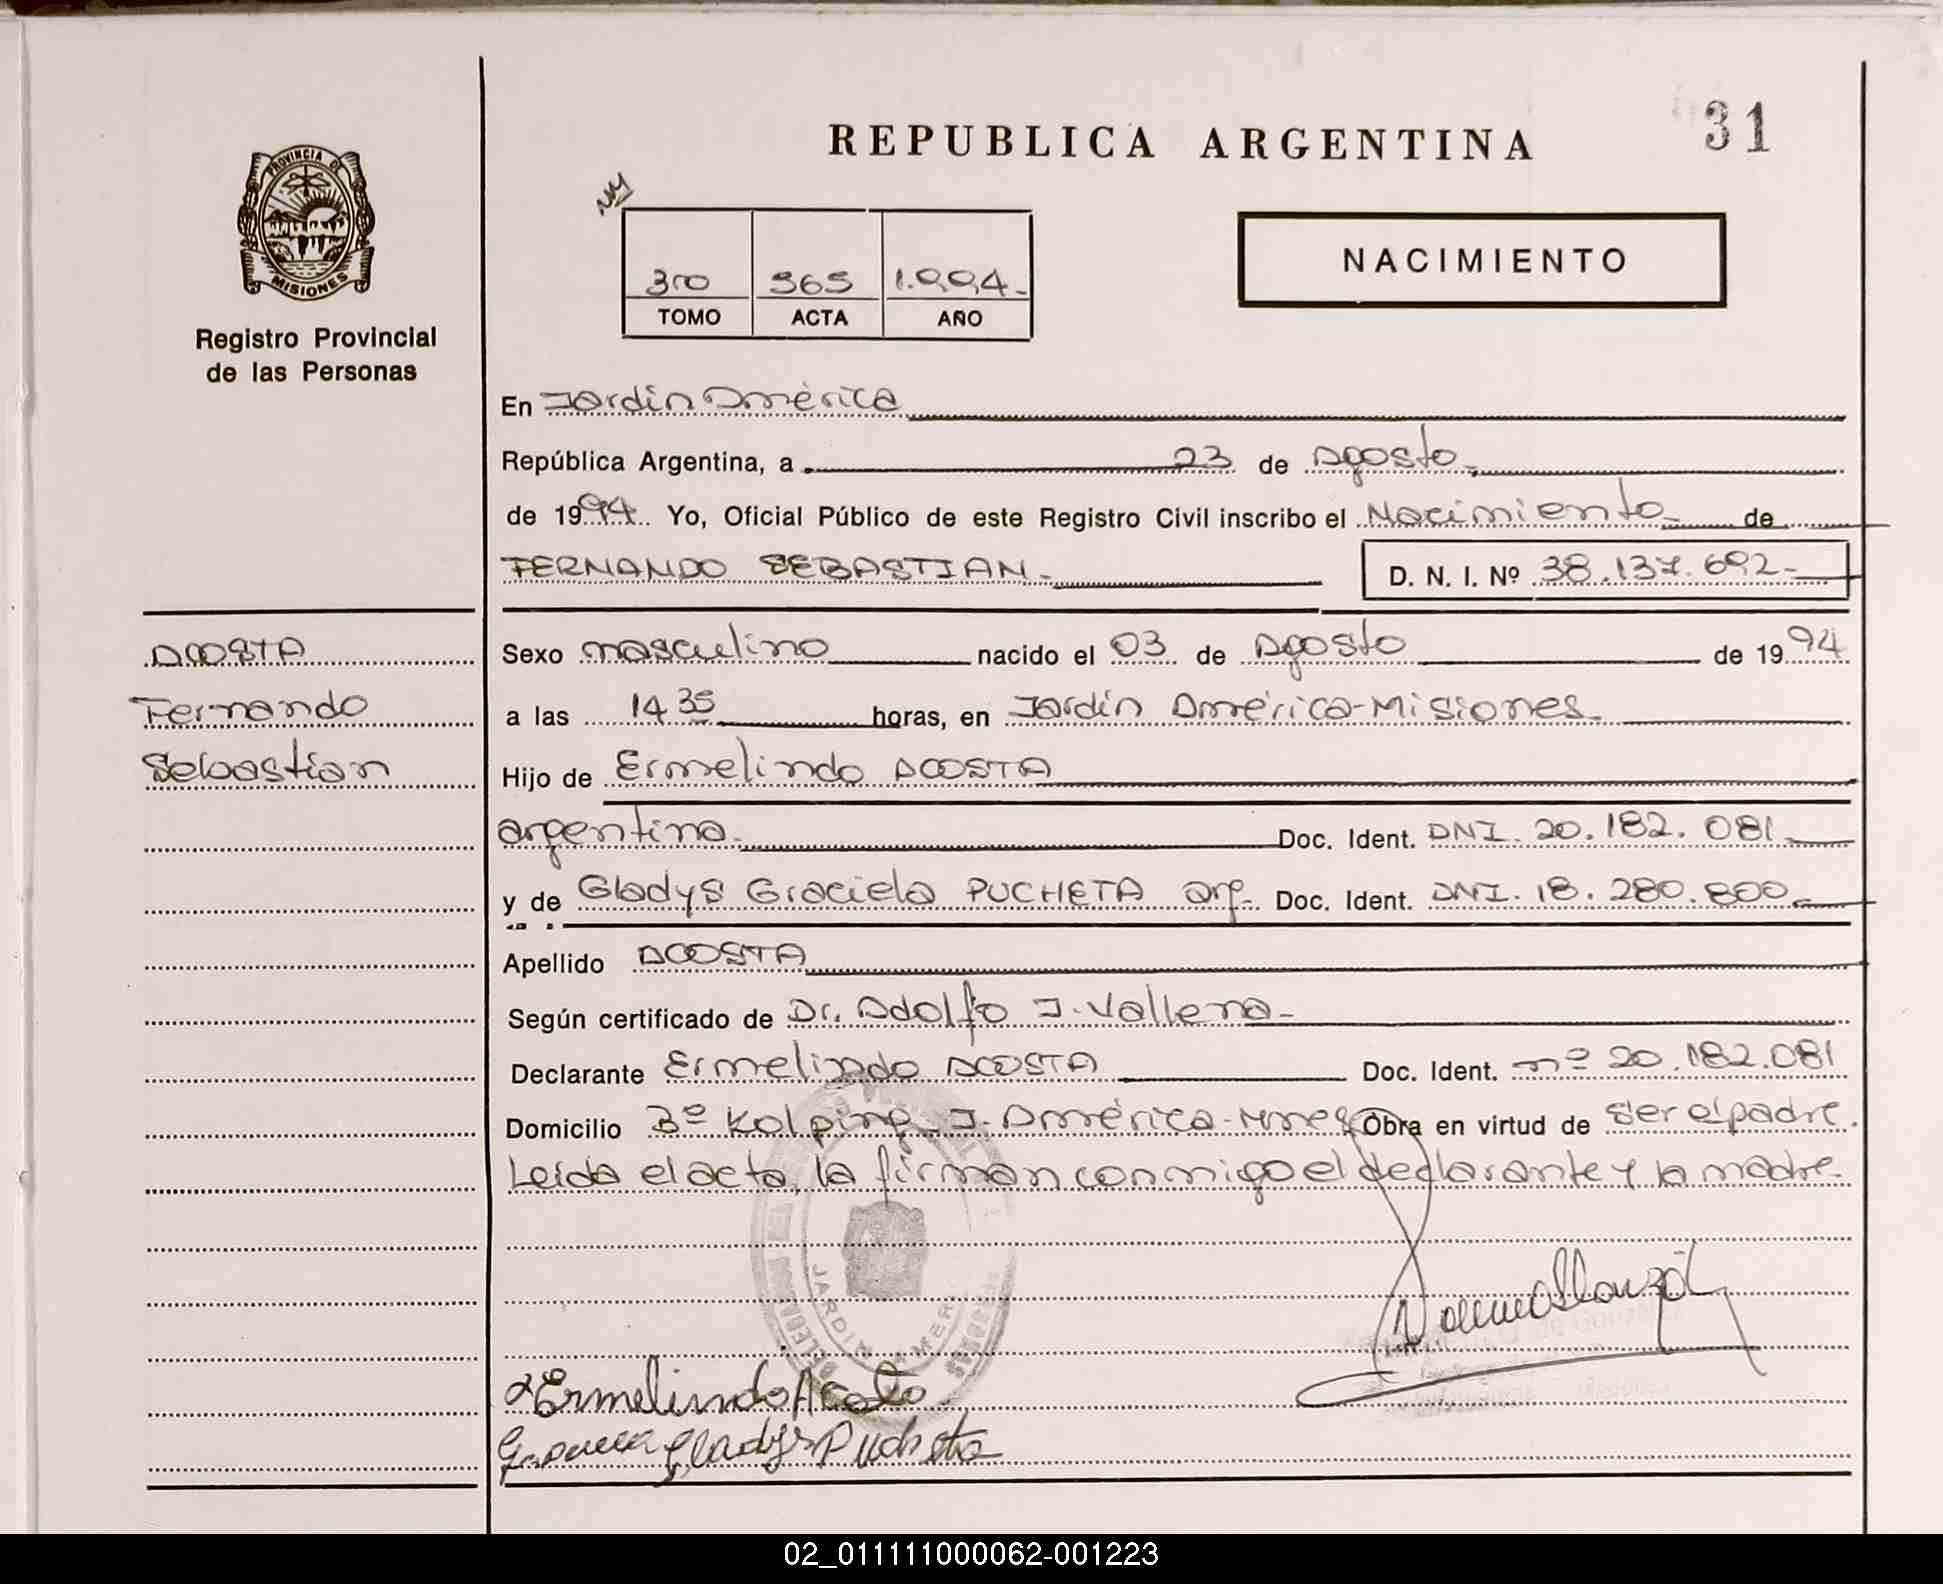 REPUBLICA ARGENTINA
31
PROVINCIA DE
MISIONES
Registro Provincial
de las Personas
NACIMIENTO
365 1.994.-
TOMO ACTA AÑO
En Jardín América
República Argentina, a 23 de Agosto
de 1994. Yo, Oficial Público de este Registro Civil inscribo el Nacimiento de
FERNANDO SEBASTIAN.- D. N. I. Nº 38.137.692-
ACOSTA
Fernando
Sebastian
Sexo masculino nacido el 03 de Agosto de 1994
a las 14 35 horas, en Jardín América-Misiones.
Hijo de Ermelindo ACOSTA
argentina. Doc. Ident. DNI. 20.182.081.
y de Gladys Graciela PUCHETA arg. Doc. Ident. DNI. 18.280.800.
Apellido ACOSTA
Según certificado de Dr. Adolfo J. Vallena-
Declarante Ermelindo ACOSTA Doc. Ident. nº 20.182.081
Domicilio Bº Kolping. J. América-Mnes Obra en virtud de ser el padre.
Leida el acta, la firman conmigo el declarante y la madre.
JARDIN AMERICA
Ermelindo Acosta
Gladys Pucheta
02_011111000062-001223